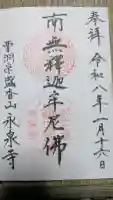 奉拝 令和八年一月十六日
南無釋迦牟尼佛
曹洞宗 盛香山 永泉寺